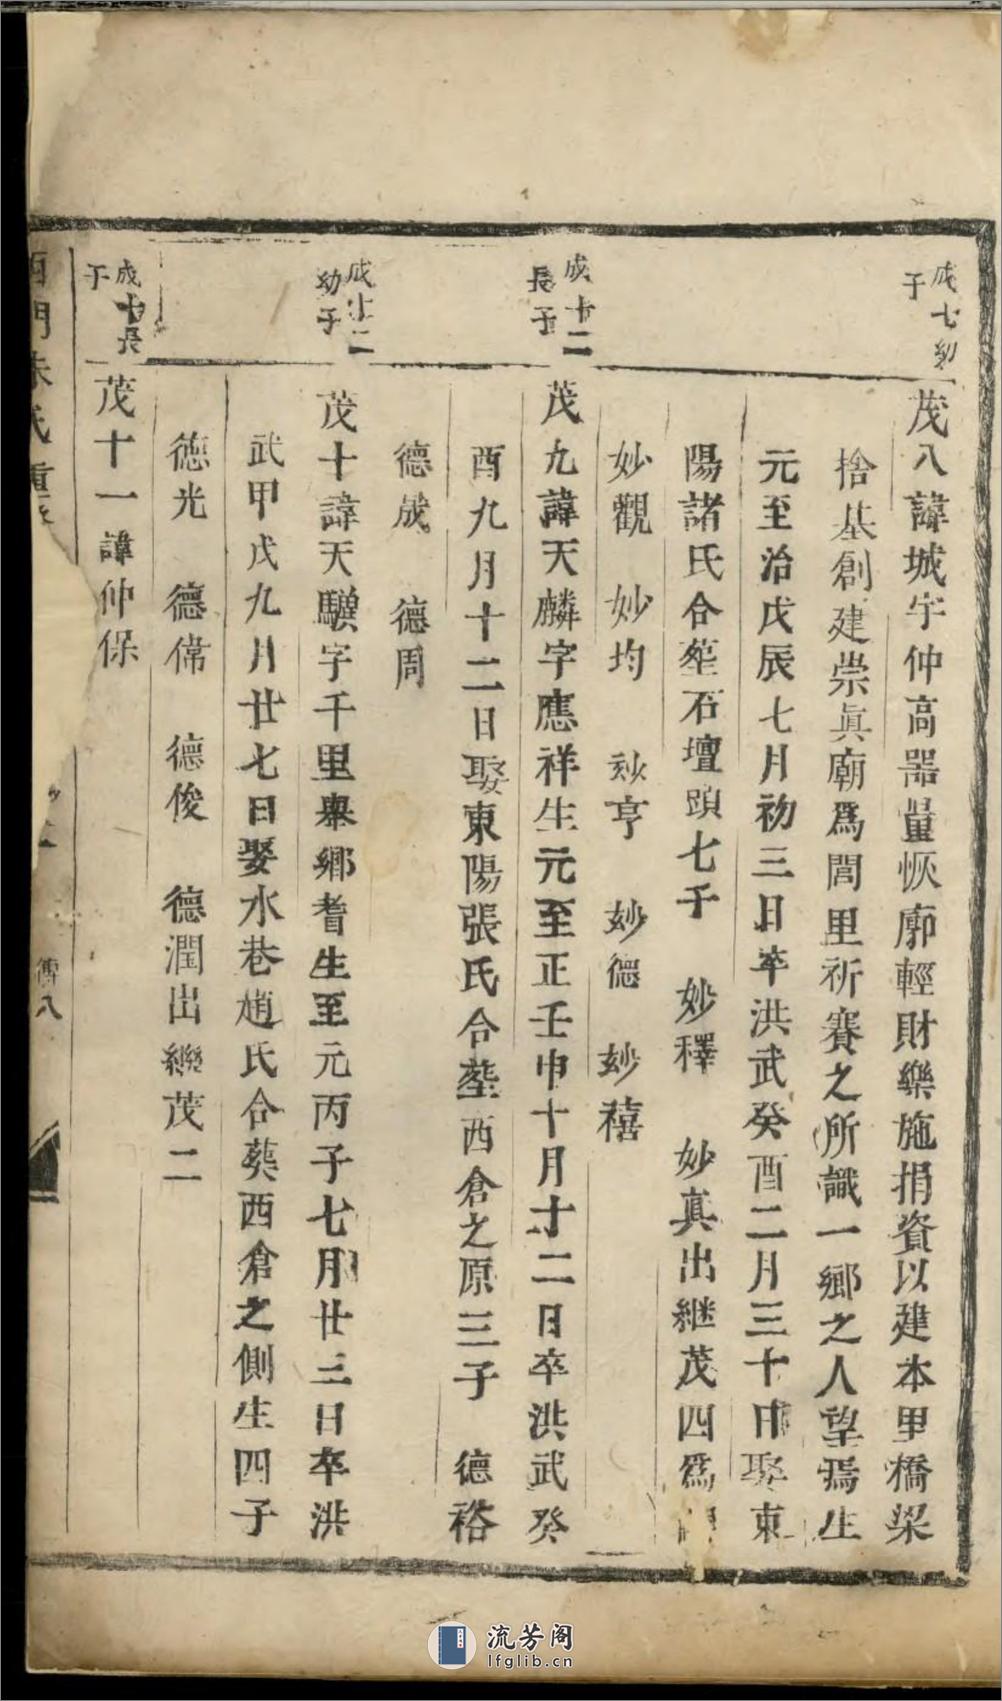 成七幼
子
茂八諱城字仲高器量恢廓輕財樂施捐資以建本里橋梁
捨基創建崇眞廟爲閭里祈賽之所識一鄉之人望焉生
元至治戊辰七月初三日卒洪武癸酉二月三十日娶東
陽諸氏合塟石壇頭七子　妙釋　妙真出継茂四爲
妙觀　妙均　妙亨　妙德　妙禧
成十二
長子
茂九諱天麟字應祥生元至正壬申十月十二日卒洪武癸
酉九月十二日娶東陽張氏合塟西倉之原三子　德裕
德成　德周
成十二
幼子
茂十諱天驥字千里舉鄉耆生至元丙子七月廿三日卒洪
武甲戌九月廿七日娶水巷趙氏合葬西倉之側生四子
德光　德俻　德俊　德潤出繼茂二
成十長
子
茂十一諱仲保
西門朱氏重
傳八
流芳阁
lfglib.cn